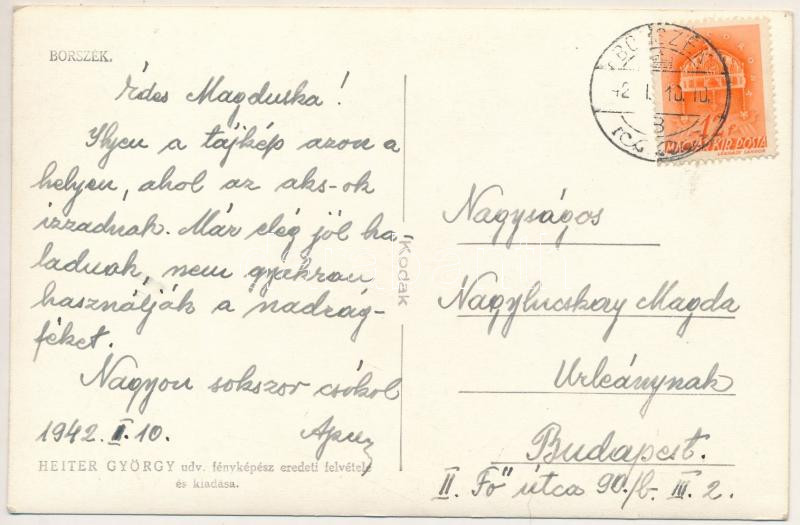 BORSZÉK.
Édes Magduska!
Ilyen a tájkép azon a
helyen, ahol az aks-ok
izzadnak. Már elég jól ha
ladnak, nem gyakran
használják a nadrág-
féket.
Nagyon sokszor csókol
1942. I. 10. Apu
HEITER GYÖRGY udv. fényképész eredeti felvétele
és kiadása.
Kodak
42 I. 10. 10
MAGYAR KIR. POSTA
Nagyságos
Nagylucskay Magda
Urleánynak
Budapest.
II. Fő utca 90./b. III. 2.